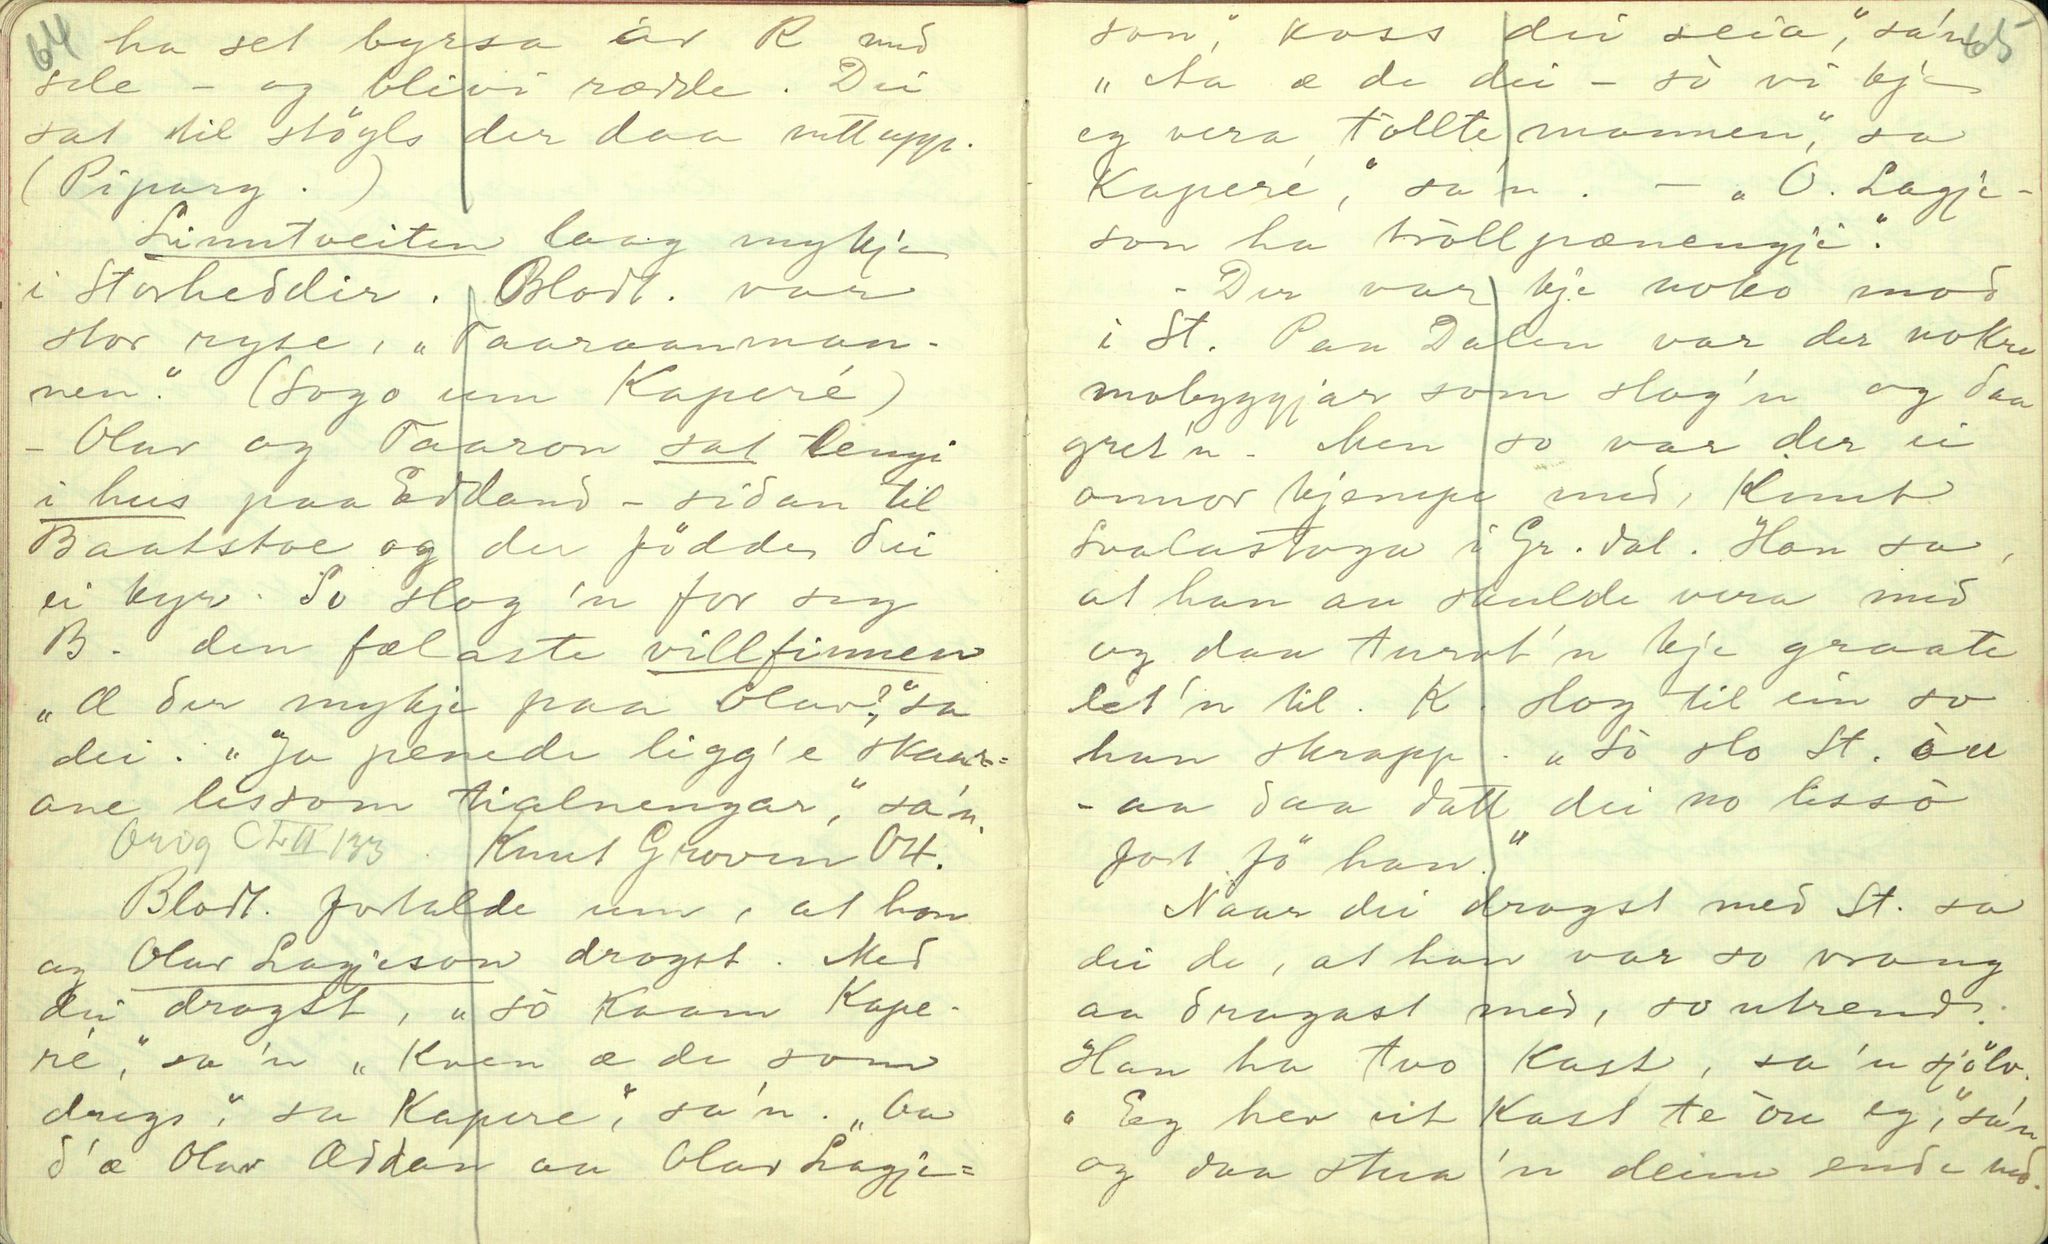 64
ha set byrsa år R med
sele - og blivi rædde. Dei
sat til stögls der daa nttupp.
(Piparg.)
Linntveiten laag mykje
i Storheddir. Blodt. var
stor ryse, „Taaraanman-
nen." (Sogo um Kaperé)
- Olav og Taaron sat lengi
i hus paa Edland - sidan til
Baatstoe og der födde dei
ei kyr. So slog 'n for seg
B. den fælaste villfinnen
„Æ der mykje paa Olav?," sa
dei. „Ja penede ligg'e skaar=
ane lissom tialnengar," sa'n.
Orig CLII 133 Knut Groven Ot.
Blodt. fortalde um, at han
og Olav Lagjeson drogst. Med
dei drogst, „sò kaam Kape-
ré," sa'n „Kven æ de som
dregs," sa Kapere," sa'n. „Aa
d'æ Olav Æddan aa Olav Lagje=
65
son," koss dei seia," sa'n
„Aa æ de dei - sò vi kje
eg vera tollte mannen," sa
Kaperé," sa'n. - „O. Lagje-
son ha tròllpænengji".
- Der var kje noko mod
i St. Paa Dalen var der nokre
mobyggjar som slog'n og daa
gret'n. Men so var der ei
onnor kjempe med, Knut
Svalastoga i Gr.dal. Han sa,
at han au skulde vera med
og daa turvt'n kje graate
let'n til. K. slog til ein so
han skrapp. „Sò slo St. òu
- aa daa datt dei no lissò
fort fö han."
Naar dei drogst med St. sa
dei de, at han var so vrang
aa dragast med, so utrend.
Han ha tvo kast, sa'n sjölv.
„Eg hev eit kast te òu eg," sa'n
og daa stua'n deim ende ned.